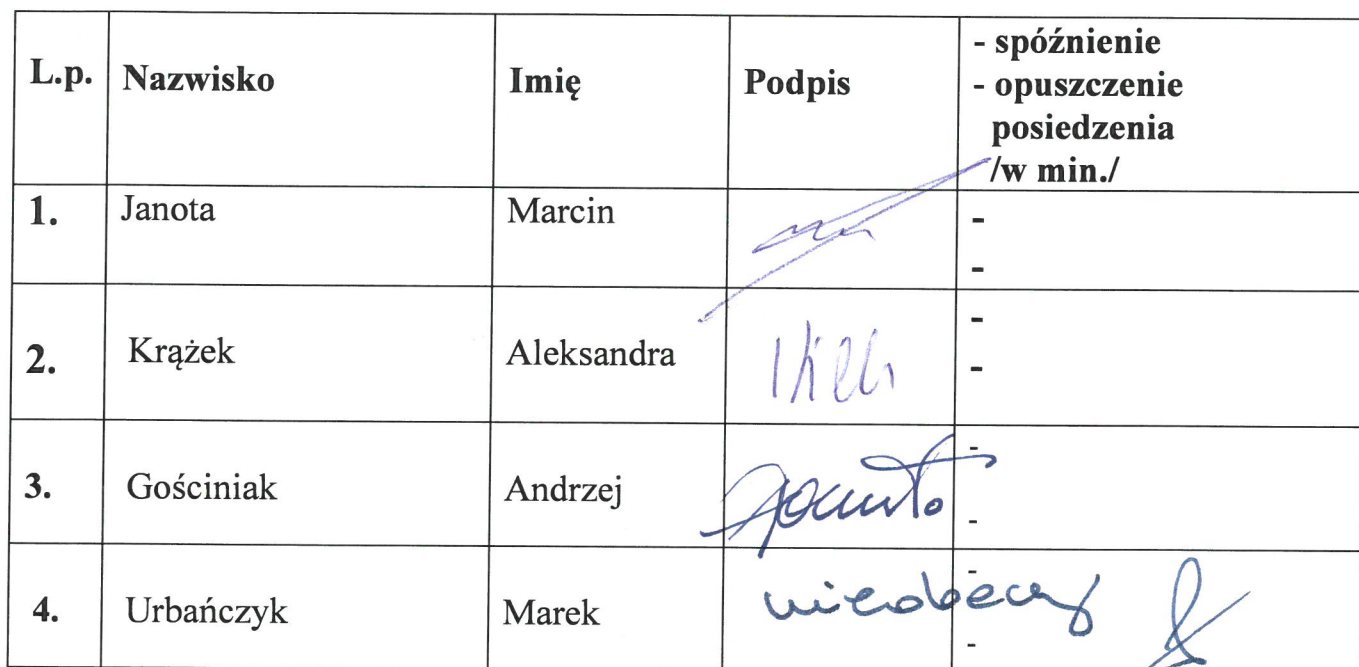 L.p. Nazwisko Imię Podpis - spóźnienie
- opuszczenie
posiedzenia
/w min./
1. Janota Marcin -
-
2. Krążek Aleksandra -
-
3. Gościniak Andrzej -
-
4. Urbańczyk Marek nieobecny -
-